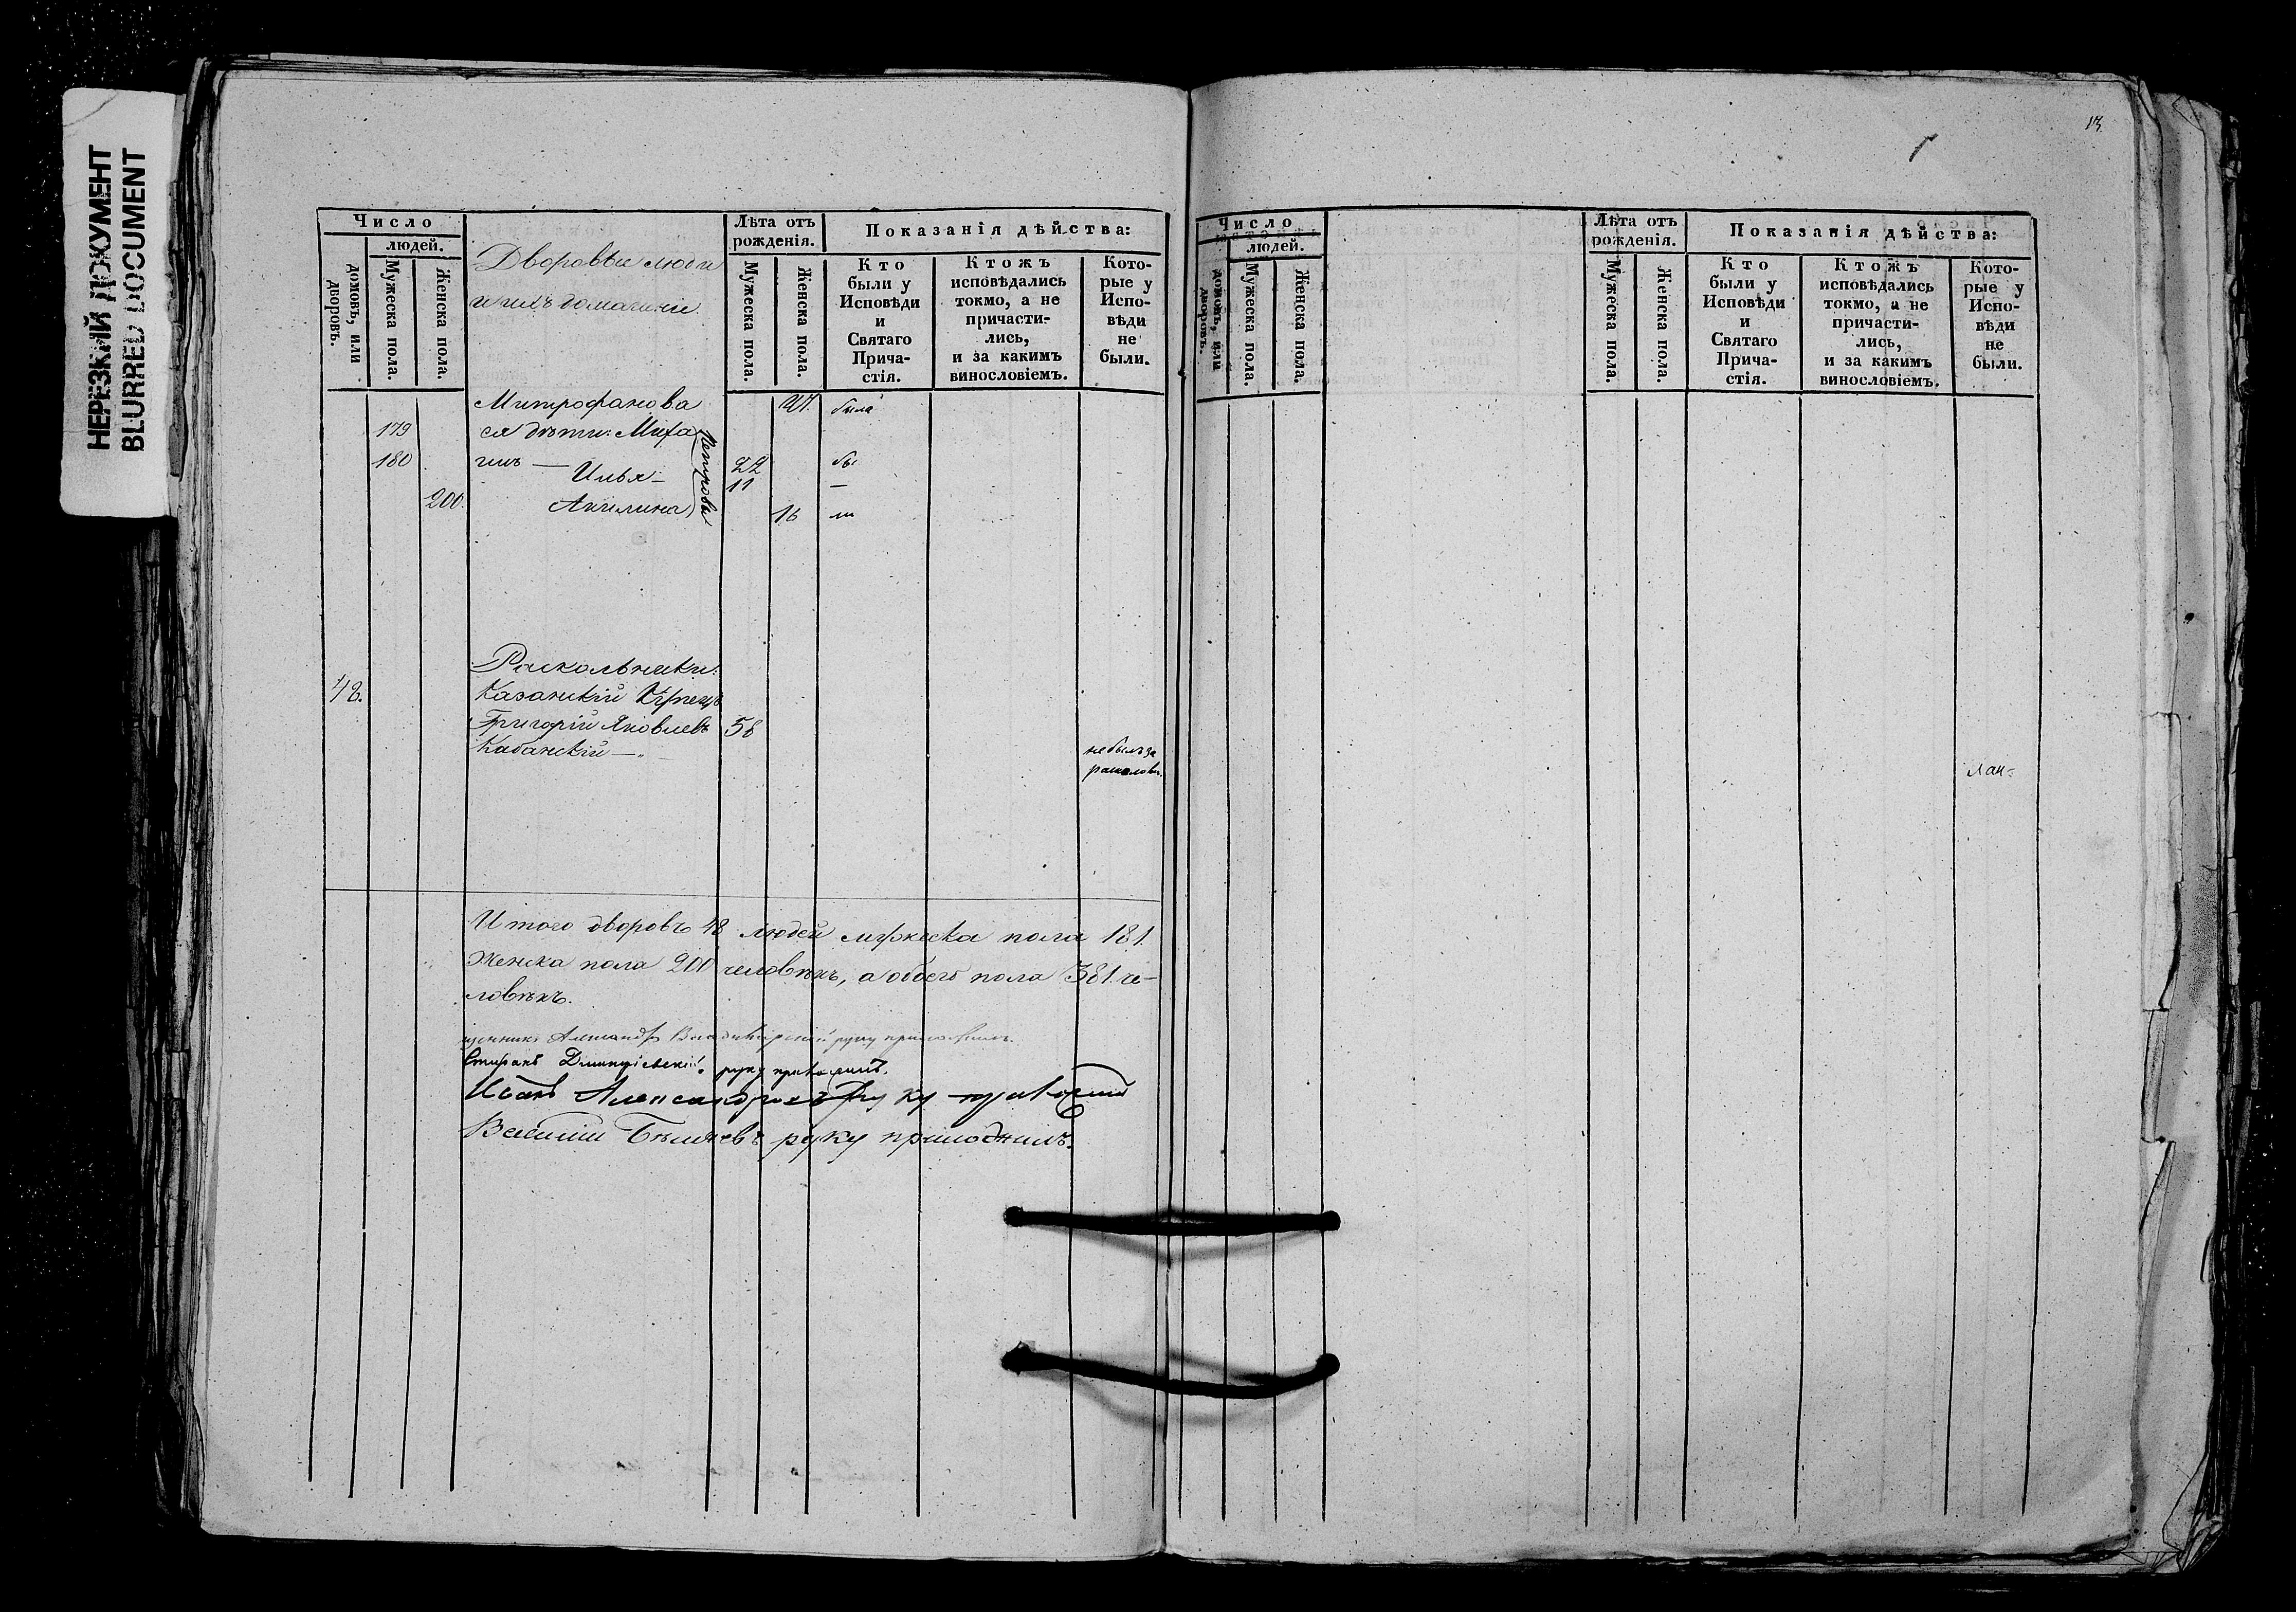 НЕРЕЗКИЙ ДОКУМЕНТ
BLURRED DOCUMENT
13
Число
людей.
домовъ, или дворовъ.
Мужеска пола.
Женска пола.
Дворовые люди
и ихъ домашніе.
Лѣта отъ рожденія.
Мужеска пола.
Женска пола.
Показанія дѣйства:
Кто были у Исповѣди и Святаго Прича-стія.
Ктожъ исповѣдались токмо, а не причасти-лись, и за какимъ винословіемъ.
Кото-рые у Испо-вѣди не были.
Митрофанова была
179 ея дѣти: Миха
180 илъ — 22 бы
Илья — 11 —
200. Акилина 16 ли
Петровы
Раскольники:
48. Казанскій Купецъ
Григорій Яковлевъ 58
Кабанскій — не былъ за
расколомъ.
Итого дворовъ 48 людей мужеска пола 181.
Женска пола 200 человѣкъ, а обоего пола 381 че-
ловѣкъ.
Александръ Владимірскій руку приложилъ.
Стефанъ Дмитріевскій руку приложилъ.
Иванъ Александровъ руку приложилъ
Василій Бѣляевъ руку приложилъ.
Число
людей.
домовъ, или дворовъ.
Мужеска пола.
Женска пола.
Лѣта отъ рожденія.
Мужеска пола.
Женска пола.
Показанія дѣйства:
Кто были у Исповѣди и Святаго Прича-стія.
Ктожъ исповѣдались токмо, а не причасти-лись, и за какимъ винословіемъ.
Кото-рые у Испо-вѣди не были.